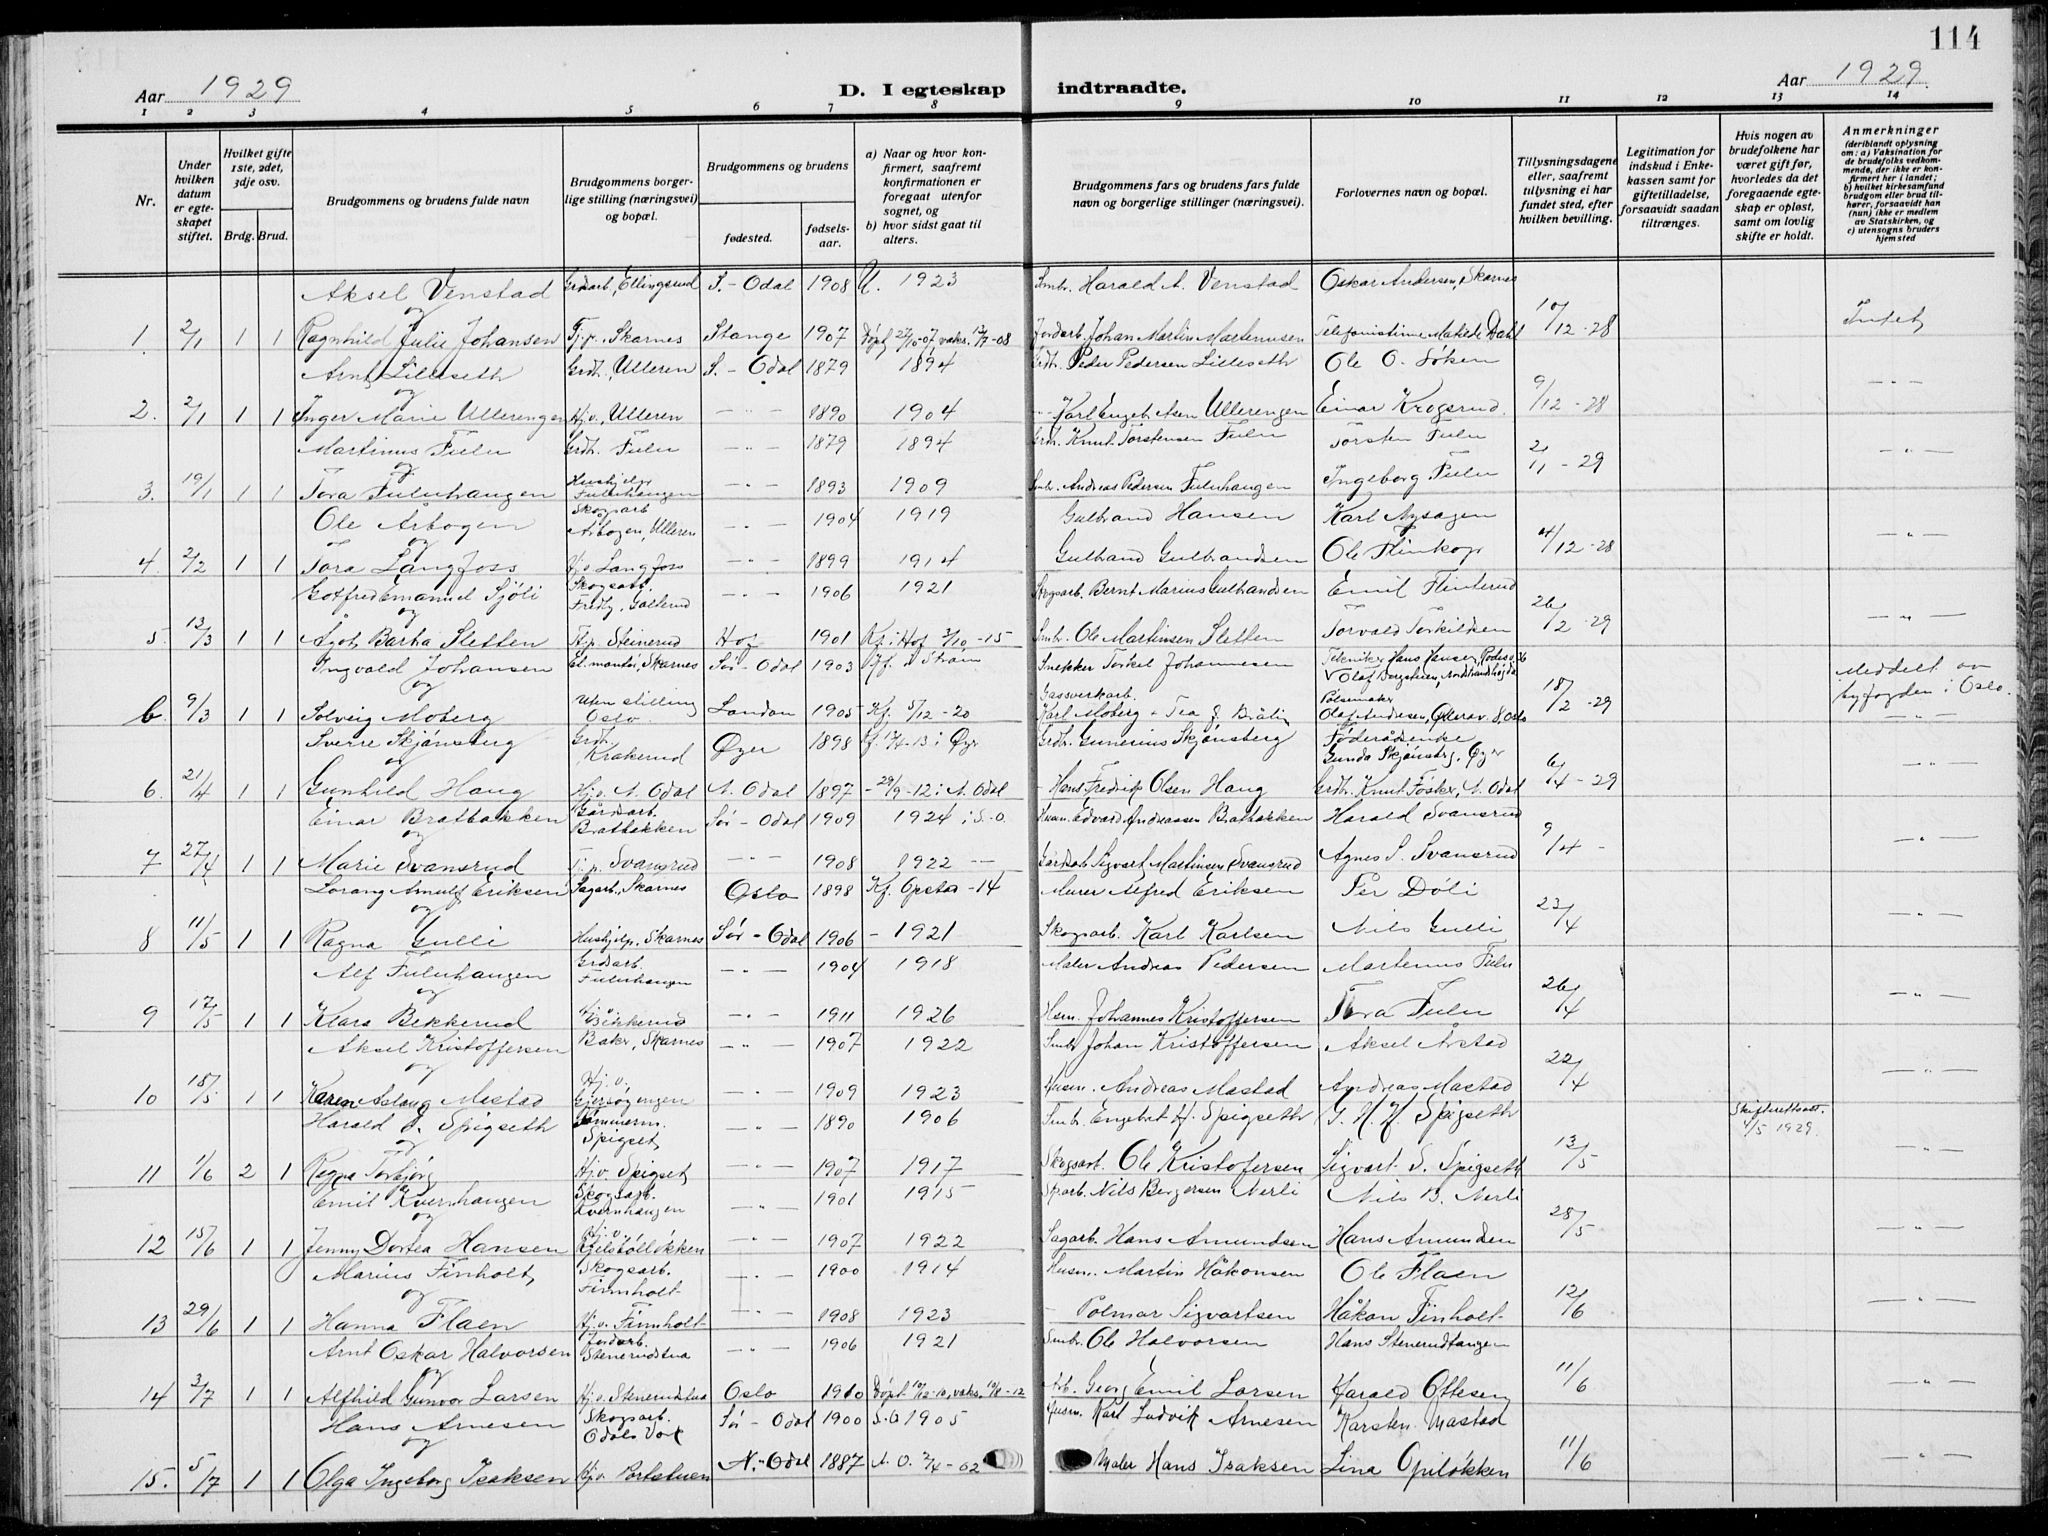 114
Aar 1929 D. I egteskap indtraadte. Aar 1929
1 2 3 4 5 6 7 8 9 10 11 12 13 14
Nr.
Under hvilken datum er egteskapet stiftet.
Hvilket gifte 1ste, 2det, 3dje osv.
Brdg. Brud.
Brudgommens og brudens fulde navn
Brudgommens borgerlige stilling (næringsvei) og bopæl.
Brudgommens og brudens
fødested. fødselsaar.
a) Naar og hvor konfirmert, saafremt konfirmationen er foregaat utenfor sognet, og
b) hvor sidst gaat til alters.
Brudgommens fars og brudens fars fulde navn og borgerlige stillinger (næringsvei).
Forlovernes navn og bopæl.
Tillysningsdagene eller, saafremt tillysning ei har fundet sted, efter hvilken bevilling.
Legitimation for indskud i Enkekassen samt for giftetilladelse, forsaavidt saadan tiltrænges.
Hvis nogen av brudefolkene har været gift før, hvorledes da det foregaaende egteskap er opløst, samt om lovlig skifte er holdt.
Anmerkninger (deriblandt oplysning om: a) Vaksination for de brudefolks vedkommende, der ikke er konfirmert her i landet; b) hvilket kirkesamfund brudgom eller brud tilhører, forsaavidt han (hun) ikke er medlem av Statskirken, og c) utensogns bruders hjemsted
Aksel Venstad Grdarb, Ellingsrud S.-Odal 1908 U. 1923 Smbr. Harald A. Venstad Oskar Andersen, Skarnes
og
1. 2/1 1 1 Ragnhild Julie Johansen Tj.p. Skarnes Stange 1907 Døpt 27/10-07, vaks. Jordarb. Johan Martin Martinusen Telefonistinne Matilde Dahl 10/12-28 Intet
Arnt Lilleseth Grdr., Ulleren S.-Odal 1879 1894 Grdr. Peder Pedersen Lilleseth Ole O. Søken
og
2. 2/1 1 1 Inger Marie Ullerengen Hj.v., Ulleren -"- 1890 1904 Ullerengen Einar Krogsrud. 9/12-28 -"-
Martinus Fulu Grdr. Fulu -"- 1879 1894 Grdr. Knut Torstensen Fulu Torsten Fulu
og
3. 19/1 1 1 Tora Fuluhaugen Hushjelp Fuluhaugen -"- 1893 1909 Smbr. Andreas Pedersen Fuluhaugen Ingeborg Fulu 2/1-29 -"-
Ole Årbogen Skogsarb Årbogen, Ulleren -"- 1904 1919 Gulbrand Hansen Karl
og
4. 2/2 1 1 Tora Langfoss Hj.v Langfoss -"- 1899 1914 Gulbrand Gulbrandsen Ole 12-28 -"-
Gotfred Emanuel Sjöli Skogsarb. -"- 1906 1921 Skogsarb. Bernt Marius Gulbrandsen Emil
og
5. 13/3 1 1 Ågot Barba Sletten Hjp. Steinerud Hof 1901 Kf. i Hof 3/10-15 Smbr. Ole Martinsen Sletten Torvald Torkildsen 26/2-29 -"-
Ingvald Johansen El. montør, Skarnes Sør-Odal 1903 Kf. Strøm Snekker Torkel Johannesen Tekniker Hans Hansen
og
6. 9/3 1 1 Solveig Moberg Uten stilling Oslo London 1905 Kf. 5/12-20 Gassverkarb. Karl Moberg Pølsemaker 18/2-29 Meddelt av byfogden i Oslo.
Sverre Skjönsberg Grdr. Krakerud Øyer 1898 i Øyr Grdr. Gunerius Skjønsberg Føderådsenke Gunda Skjönsbrg, Øyer
og
6. 21/4 1 1 Gunhild Haug Hj.v. N. Odal N. Odal 1897 -29/9-12 i N. Odal Hans Fredrik Olsen Haug Grdr. Knut N. Odal 6/4-29 -"-
Einar Bratbakken Gårdsarb. Bratbakken Sør-Odal 1909 1924 i S.-O. Husm. Edvard Andreassen Bratbakken Harald Svansrud
og
7 27/4 1 1 Marie Svansrud Tj.p. Svansrud -"- 1908 1922 Gårdsarb. Sigvart Martinsen Svansrud Agnes S. Svansrud 9/4 - -"-
Lorang Arnulf Eriksen Sagarb., Skarnes Oslo 1898 Kf. Opstad-14 Murer Alfred Eriksen Per Döli
og
8 11/5 1 1 Ragna Gulli Hushjelp. Skarnes Sør-Odal 1906 - 1921 Skogsarb. Karl Karlsen Nils Gulli 23/4 -"-
Alf Fuluhaugen Grdsarb. Fuluhaugen -"- 1904 1918 Maler Andreas Pedersen Martinus Fulu
og
9 17/5 1 1 Klara Bekkerud Bekkerud -"- 1911 1926 Husm. Johannes Kristoffersen Tora Fulu 26/4 -"-
Aksel Kristoffersen Baker, Skarnes -"- 1907 1922 Smbr Johan Kristoffersen Aksel Årstad
og
10 18/5 1 1 Karen Aslaug Mastad Hj.v. -"- 1909 1923 Husm. Andreas Mastad Andreas Mastad 22/4 -"-
Harald E. Spigseth Tömmerm. Spigset -"- 1890 1906 Smbr. Engebet H. Spigseth Spigseth Skifterettsatt. 4/5 1929.
og
11 1/6 2 1 Ragna Torbjörg Hj.v. Spigset -"- 1907 1917 Skogsarb. Ole Kristofersen Sigvart S. Spigseth 13/5 -"-
Emil Kvernhaugen Skogsarb. Kvernhaugen -"- 1901 1915 Skarb. Nils Bergersen Nerli Nils B. Nerli
og
12 15/6 1 1 Jenny Dortea Hansen Hj.v. -"- 1907 1922 Sagarb. Hans Amundsen Hans Amunden 28/5 -"-
Marius Finholt Skogsarb. Finnholt -"- 1900 1914 Husm. Martin Håkonsen Ole Flaen
og
13 29/6 1 1 Hanna Flaen Hj.v. Finnholt -"- 1908 1923 - Polmar Sigvartsen Håkon Finholt 12/6 -"-
Arnt Oskar Halvorsen Jordarb. -"- 1906 1921 Smbr. Ole Halvorsen Hans Stenerudtangen
og
14 3/7 1 1 Alfhild Gunvor Larsen Hj.v. Oslo 1910 Døpt 10/12-10, vaks. 10/8-12 Arb. Georg Emil Larsen Harald Oftesen 11/6 -"-
Hans Arnesen Skogsarb. Odals Verk Sør-Odal 1900 S.O 1905 Husm. Karl Ludvik Arnesen Karsten Mastad
og
15. 5/7 1 1 Olga Ingeborg Isaksen Hj.v. Portstuen N.-Odal 1887 N.O. 2/4-02 Maler Hans Isaksen Lina Opiløkken 11/6